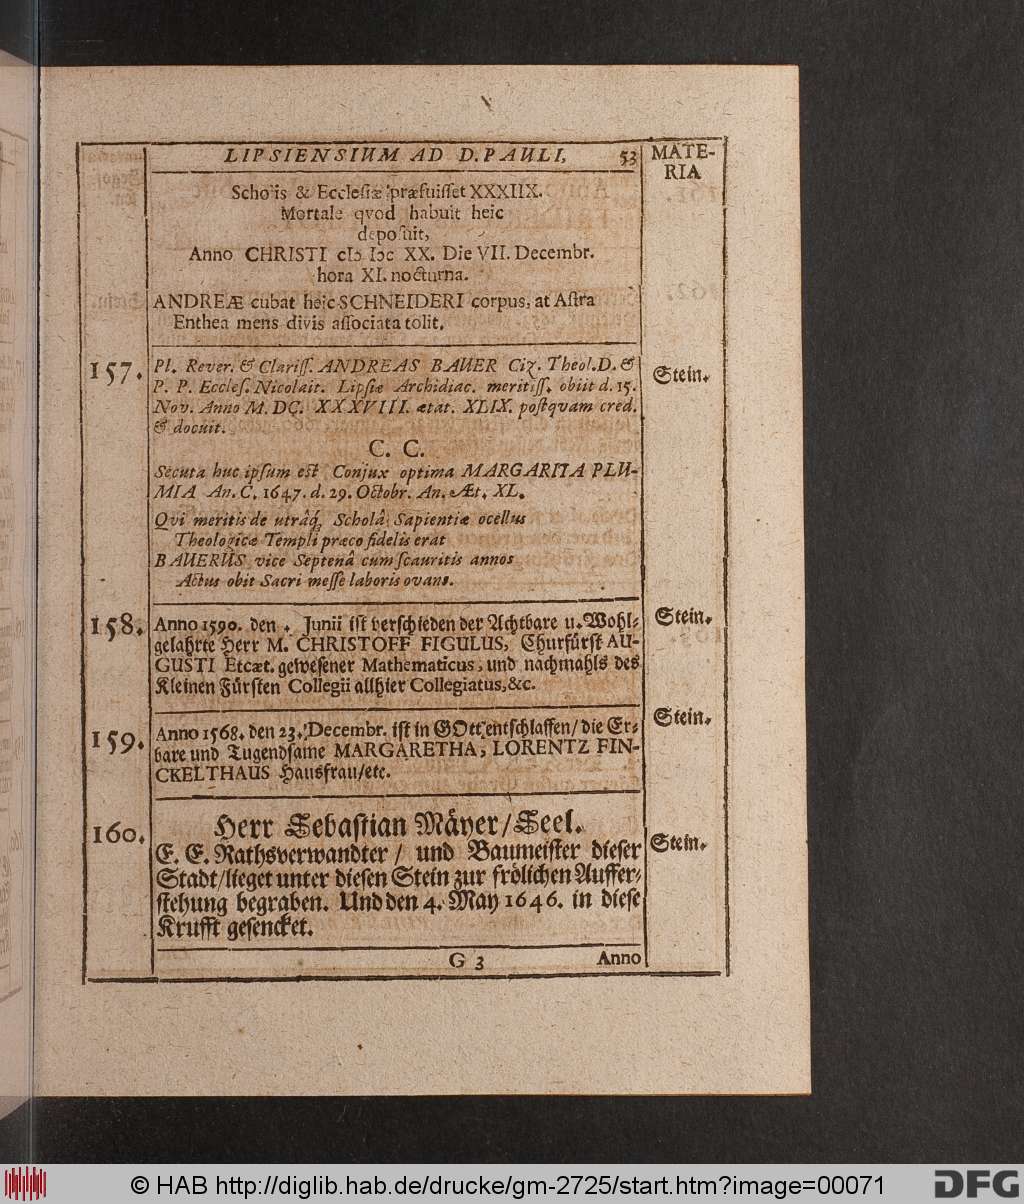 LIPSIENSIUM AD D. PAULI, 53
MATE-
RIA
Scholis & Ecclesiæ præfuiſſet XXXIIX.
Mortale qvod habuit heic
depoſuit,
Anno CHRISTI cIↃ Iↄc XX. Die VII. Decembr.
hora XI. nocturna.
ANDREÆ cubat heic SCHNEIDERI corpus, at Aſtra
Enthea mens divis aſſociata tolit.
157. Pl. Rever. & Clariſſ. ANDREAS BAUER Ciz. Theol. D. & Stein.
P. P. Eccleſ. Nicolait. Lipſiæ Archidiac. meritiſſ. obiit d. 15.
Nov. Anno M. DC. XXXVIII. ætat. XLIX. poſtqvam cred.
& docuit.
C. C.
Secuta huc ipſum est Conjux optima MARGARITA PLU-
MIA An. C. 1647. d. 29. Octobr. An. Æt. XL.
Qvi meritis de utrâq; Scholâ Sapientiæ ocellus
Theologicæ Templi præco fidelis erat
BAUERUS vice Septenâ cum ſcauritis annos
Actus obit Sacri meſſe laboris ovans.
158. Anno 1590. den . Junii iſt verſchieden der Achtbare u. Wohl- Stein.
gelahrte Herr M. CHRISTOFF FIGULUS, Churfürſt AU-
GUSTI Etcæt. geweſener Mathematicus, und nachmahls des
Kleinen Fürſten Collegii allhier Collegiatus, &c.
159. Anno 1568. den 23. Decembr. iſt in GOtt entſchlaffen / die Er- Stein.
bare und Tugendſame MARGARETHA, LORENTZ FIN-
CKELTHAUS Hausfrau / etc.
160. Herr Sebaſtian Mäyer / Seel. Stein.
E. E. Rathsverwandter / und Baumeiſter dieſer
Stadt / lieget unter dieſen Stein zur frölichen Auffer-
ſtehung begraben. Und den 4. May 1646. in dieſe
Krufft geſencket.
G 3 Anno
© HAB http://diglib.hab.de/drucke/gm-2725/start.htm?image=00071 DFG